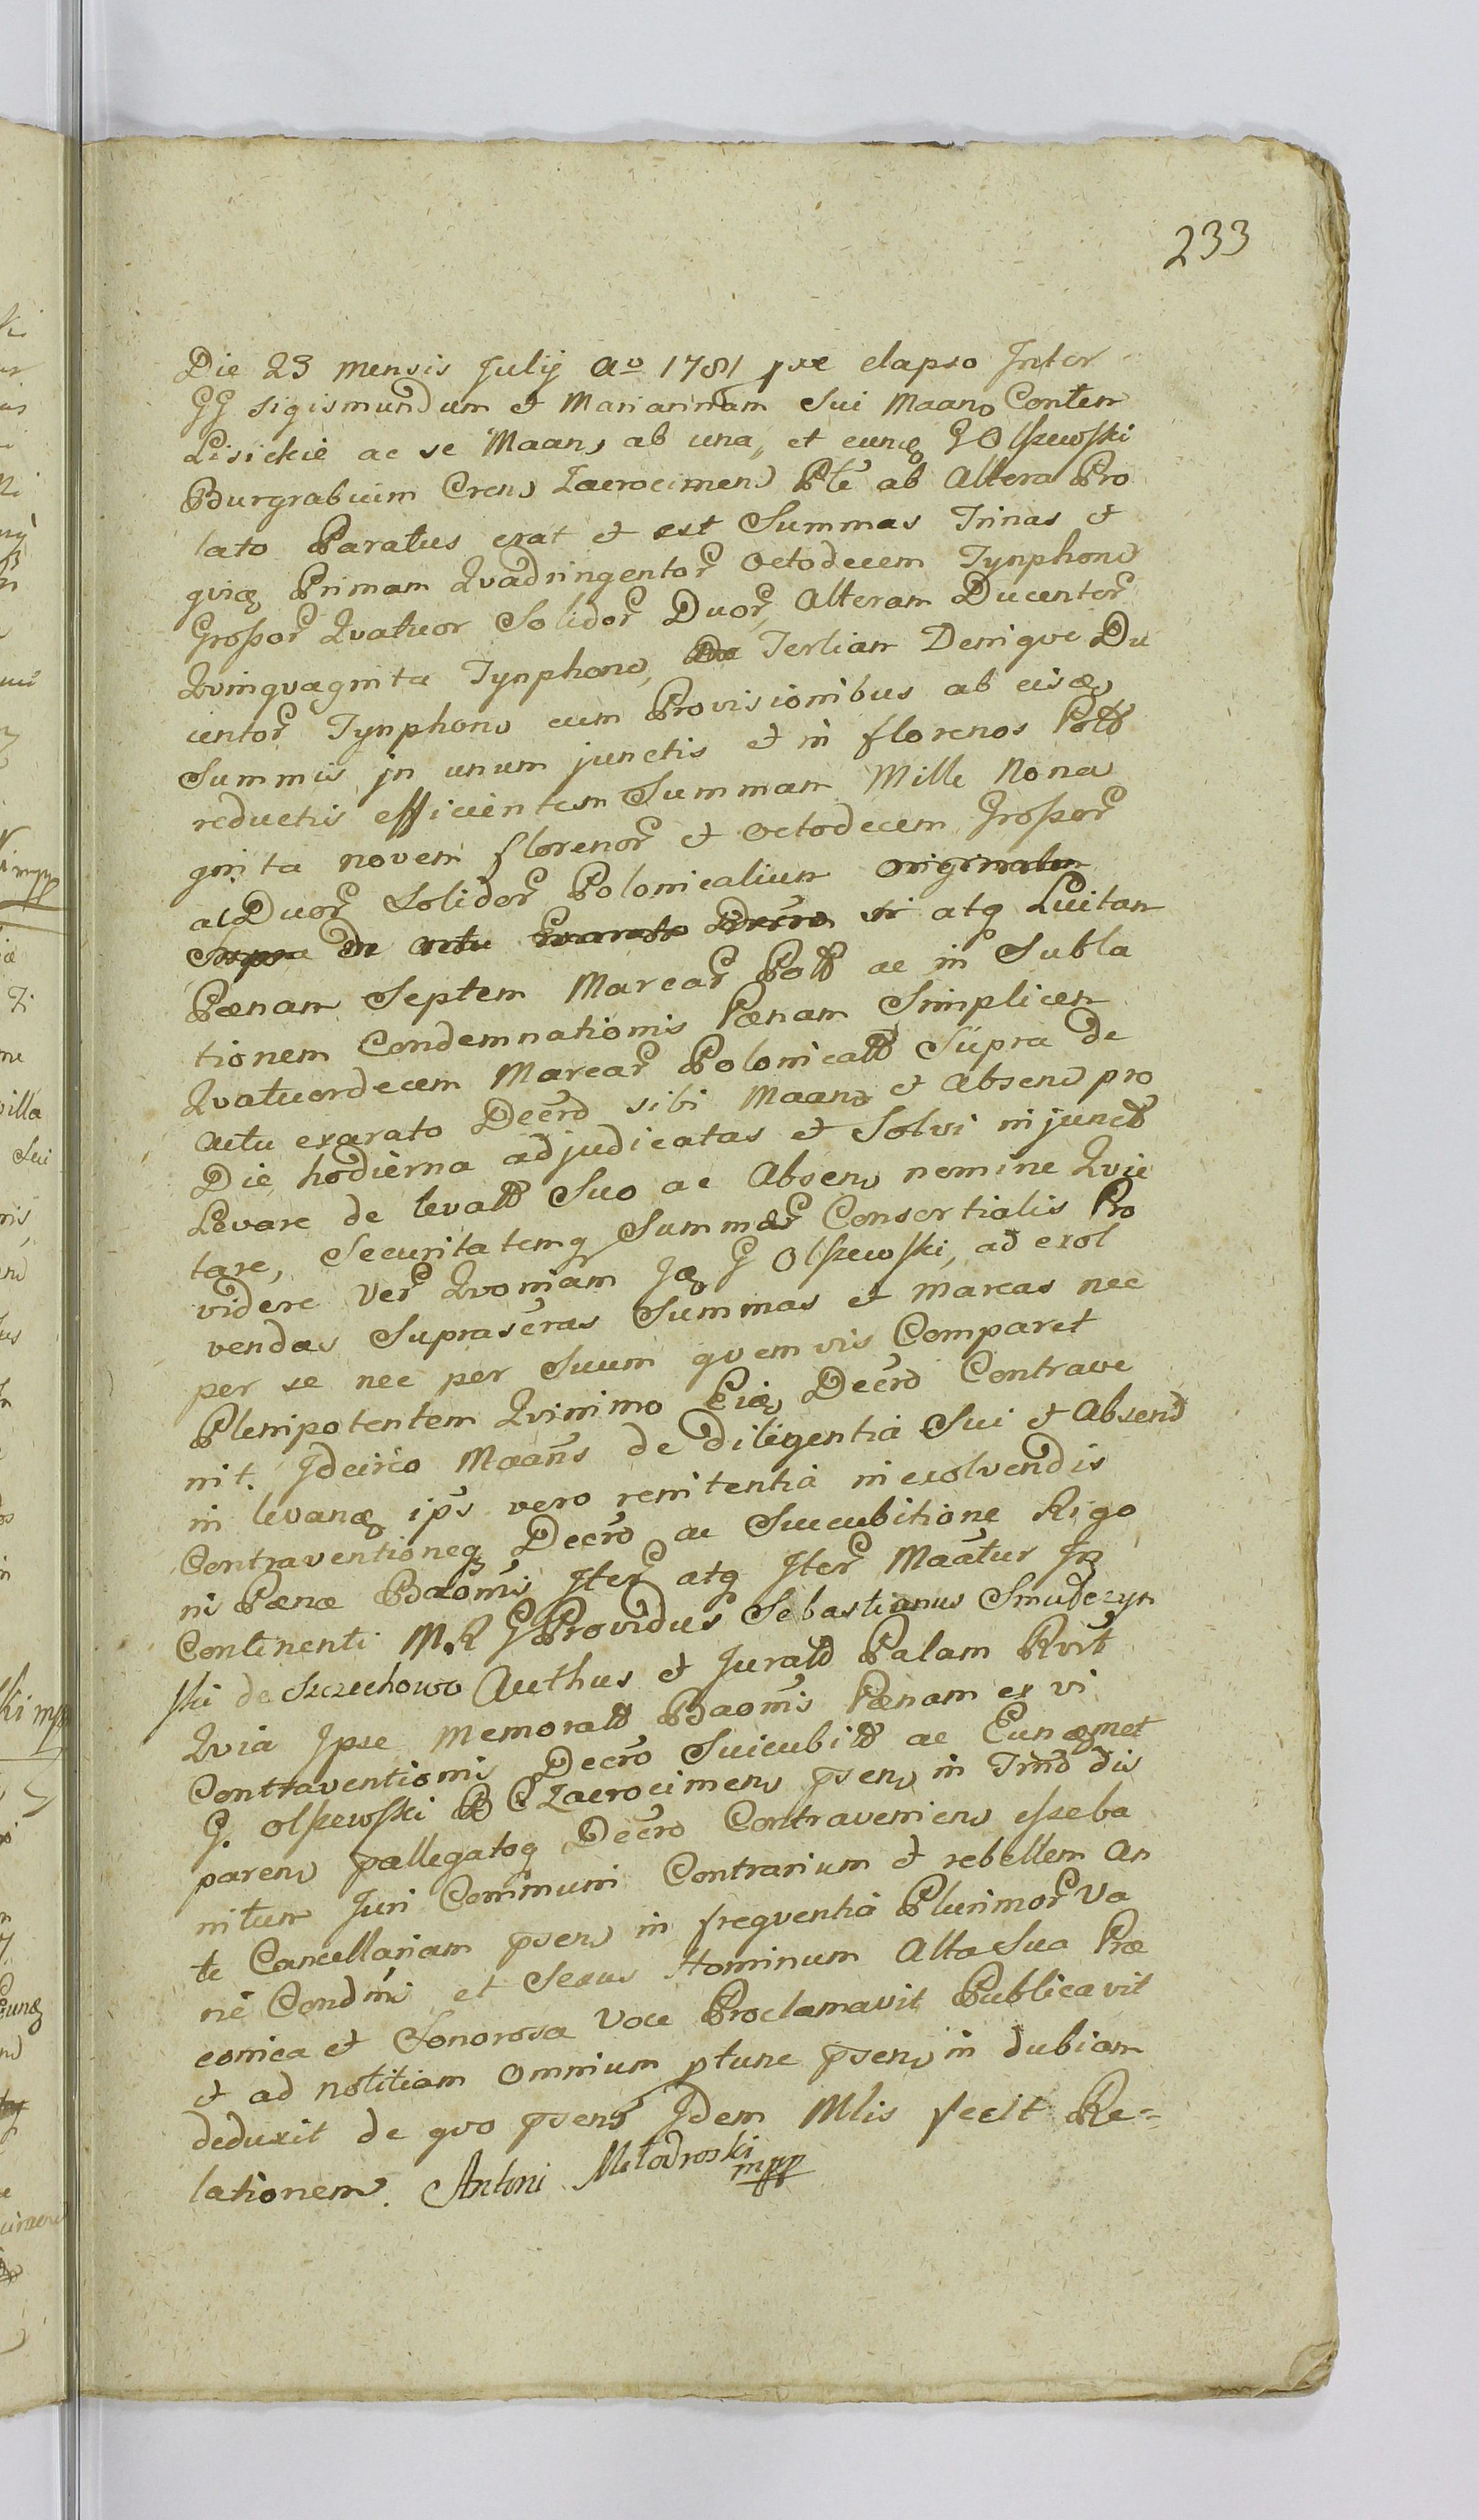 233
Die 23 mensis Julij Ao 1781 pxe elapso Inter
GG Sigismundum et Mariannam Sui Maan Conten
Lisickie ac se Maan ab una, et eunq G Olszewski
Burgrabium Cren Zacrocimen Pte ab Altera Pro
lato Paratus erat et est Summas Trinas et
qvią Primam Qvadringentor Octodecem Tynphon
Groszor Qvatuor Solidor Duor, Alteram Ducentor
Qvinqvaginta Tynphon, Tertiam Deniqve Du
centor Tynphon cum Provisionibus ab eisą
Summis in unum junctis et in florenos Poll
reductis efficientem Summam Mille Nona
ginta novem florenor et octodecem Groszor
ac Duor Solidor Polonicalium Originalem
Supra de Actu Exarato Decro atq Luitam
Pænam Septem Marcar Poll ac in Subla
tionem Condemnationis Pænam Simplicem
Qvatuordecem Marcar Polonicall Supra de
actu exarato Decro sibi Maan et Absen pro
Die hodierna adjudicatas et Solvi injunct
Levare de levatt Suo ac Absen nomine Qvie
tare, Securitatemq Summar Consortialis Pro
videre Ver Qvoniam Ją G Olszewski, ad exol
vendas Suprascras Summas et marcas nec
per se nec per Suum qvemvis Comparet
Plenipotentem Qvinimo Eią Decro Contrave
nit. Idcirco Maans de diligentia Sui et Absen
in levaną ips vero renitentia in exolvendis
Contraventioneq Decro ac Succubitione Rigo
ni Pænæ Baomis Iter atq Iter Maatur In
Continenti M.R G Providus Sebastianus Smudczyn
ski de Szczechowo Authus et Juratt Palam Rvit
Qvia Ipse Memoratt Baomis Pænam ex vi
Contraventionis Decro Suicubitt ac Eunąmet
G. Olszewski B C Zacrocimen psen in Tmd dis
paren pallegatoq Decro Contravenien eszeba
nitum Juri Communi Contrarium et rebellem An
te Cancellariam psen in freqventia Plurimor Va
ne Condni et Sexus Hominum Alta Sua Præ
conica et Sonorosa Voce Proclamavit Publicavit
et ad notitiam Omnium ptunc psen in dubiam
deduxit de qvo psens Idem Mlis fecit Re=
lationem. Antoni Młodroski mpp